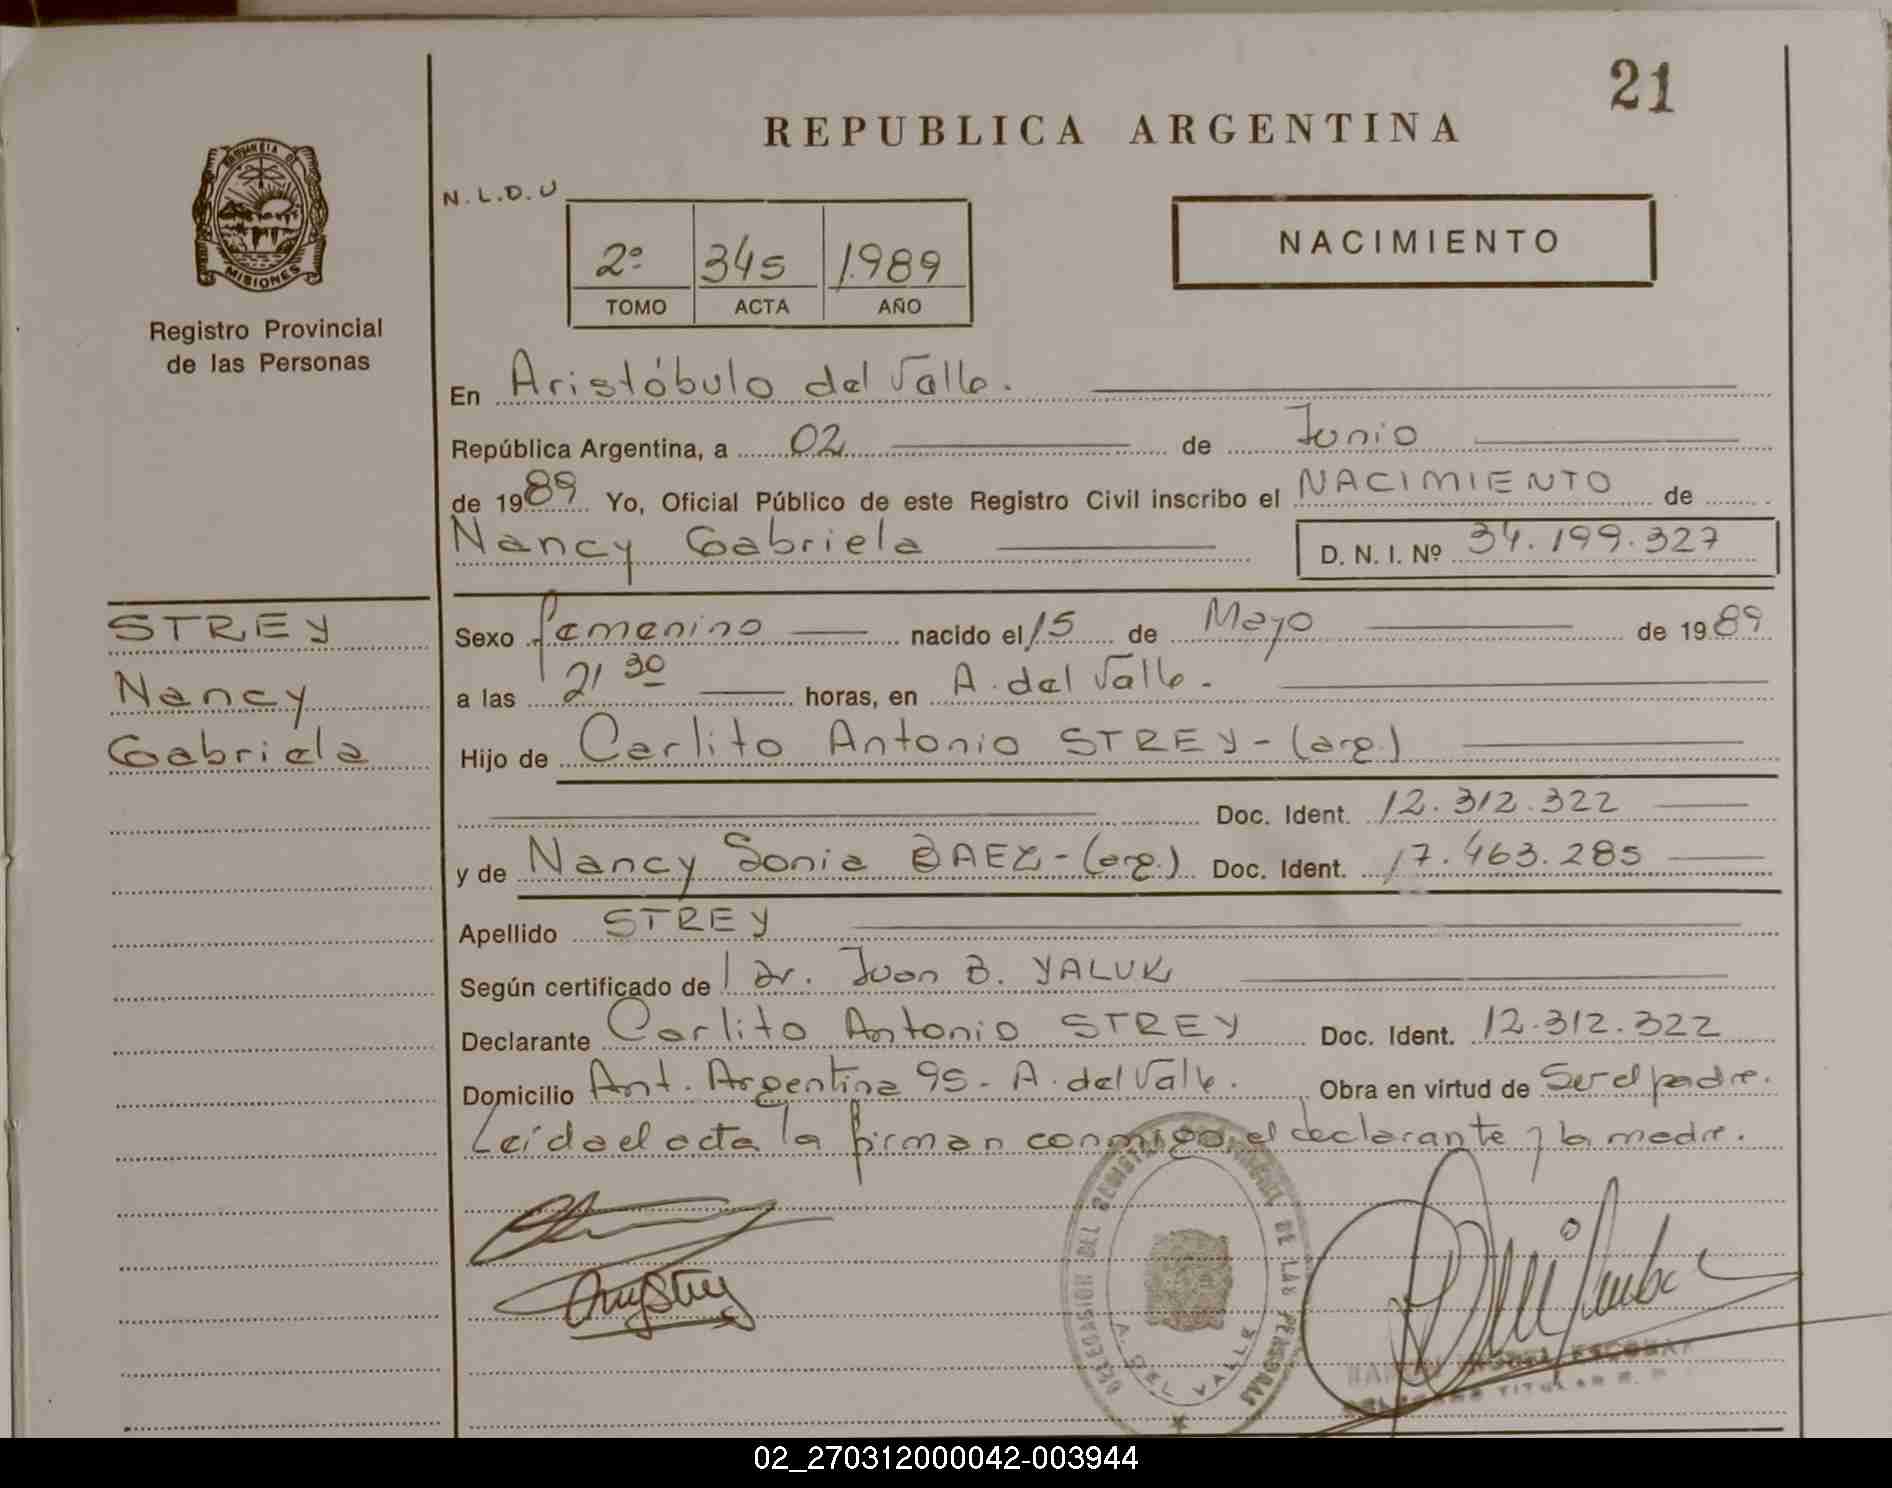 21
REPUBLICA ARGENTINA
PROVINCIA DE
MISIONES
Registro Provincial
de las Personas
N.L.D.U
2º 345 1989
TOMO ACTA AÑO
NACIMIENTO
En Aristóbulo del Valle.
República Argentina, a 02 de Junio
de 1989 Yo, Oficial Público de este Registro Civil inscribo el NACIMIENTO de
Nancy Gabriela D. N. I. Nº 34.199.327
STREY
Nancy
Gabriela
Sexo femenino nacido el 15 de Mayo de 1989
a las 21 30 horas, en A. del Valle.
Hijo de Carlito Antonio STREY - (arg.)
Doc. Ident. 12.312.322
y de Nancy Sonia BAEZ - (arg.) Doc. Ident. 17.463.285
Apellido STREY
Según certificado de Dr. Juan B. YALUK
Declarante Carlito Antonio STREY Doc. Ident. 12.312.322
Domicilio Ant. Argentina 95 - A. del Valle. Obra en virtud de Ser el padre.
Leída el acta la firman conmigo el declarante y la madre.
DELEGACION DEL REGISTRO PROVINCIAL DE LAS PERSONAS
A. DEL VALLE
ESCOBAR
TITULAR
02_270312000042-003944